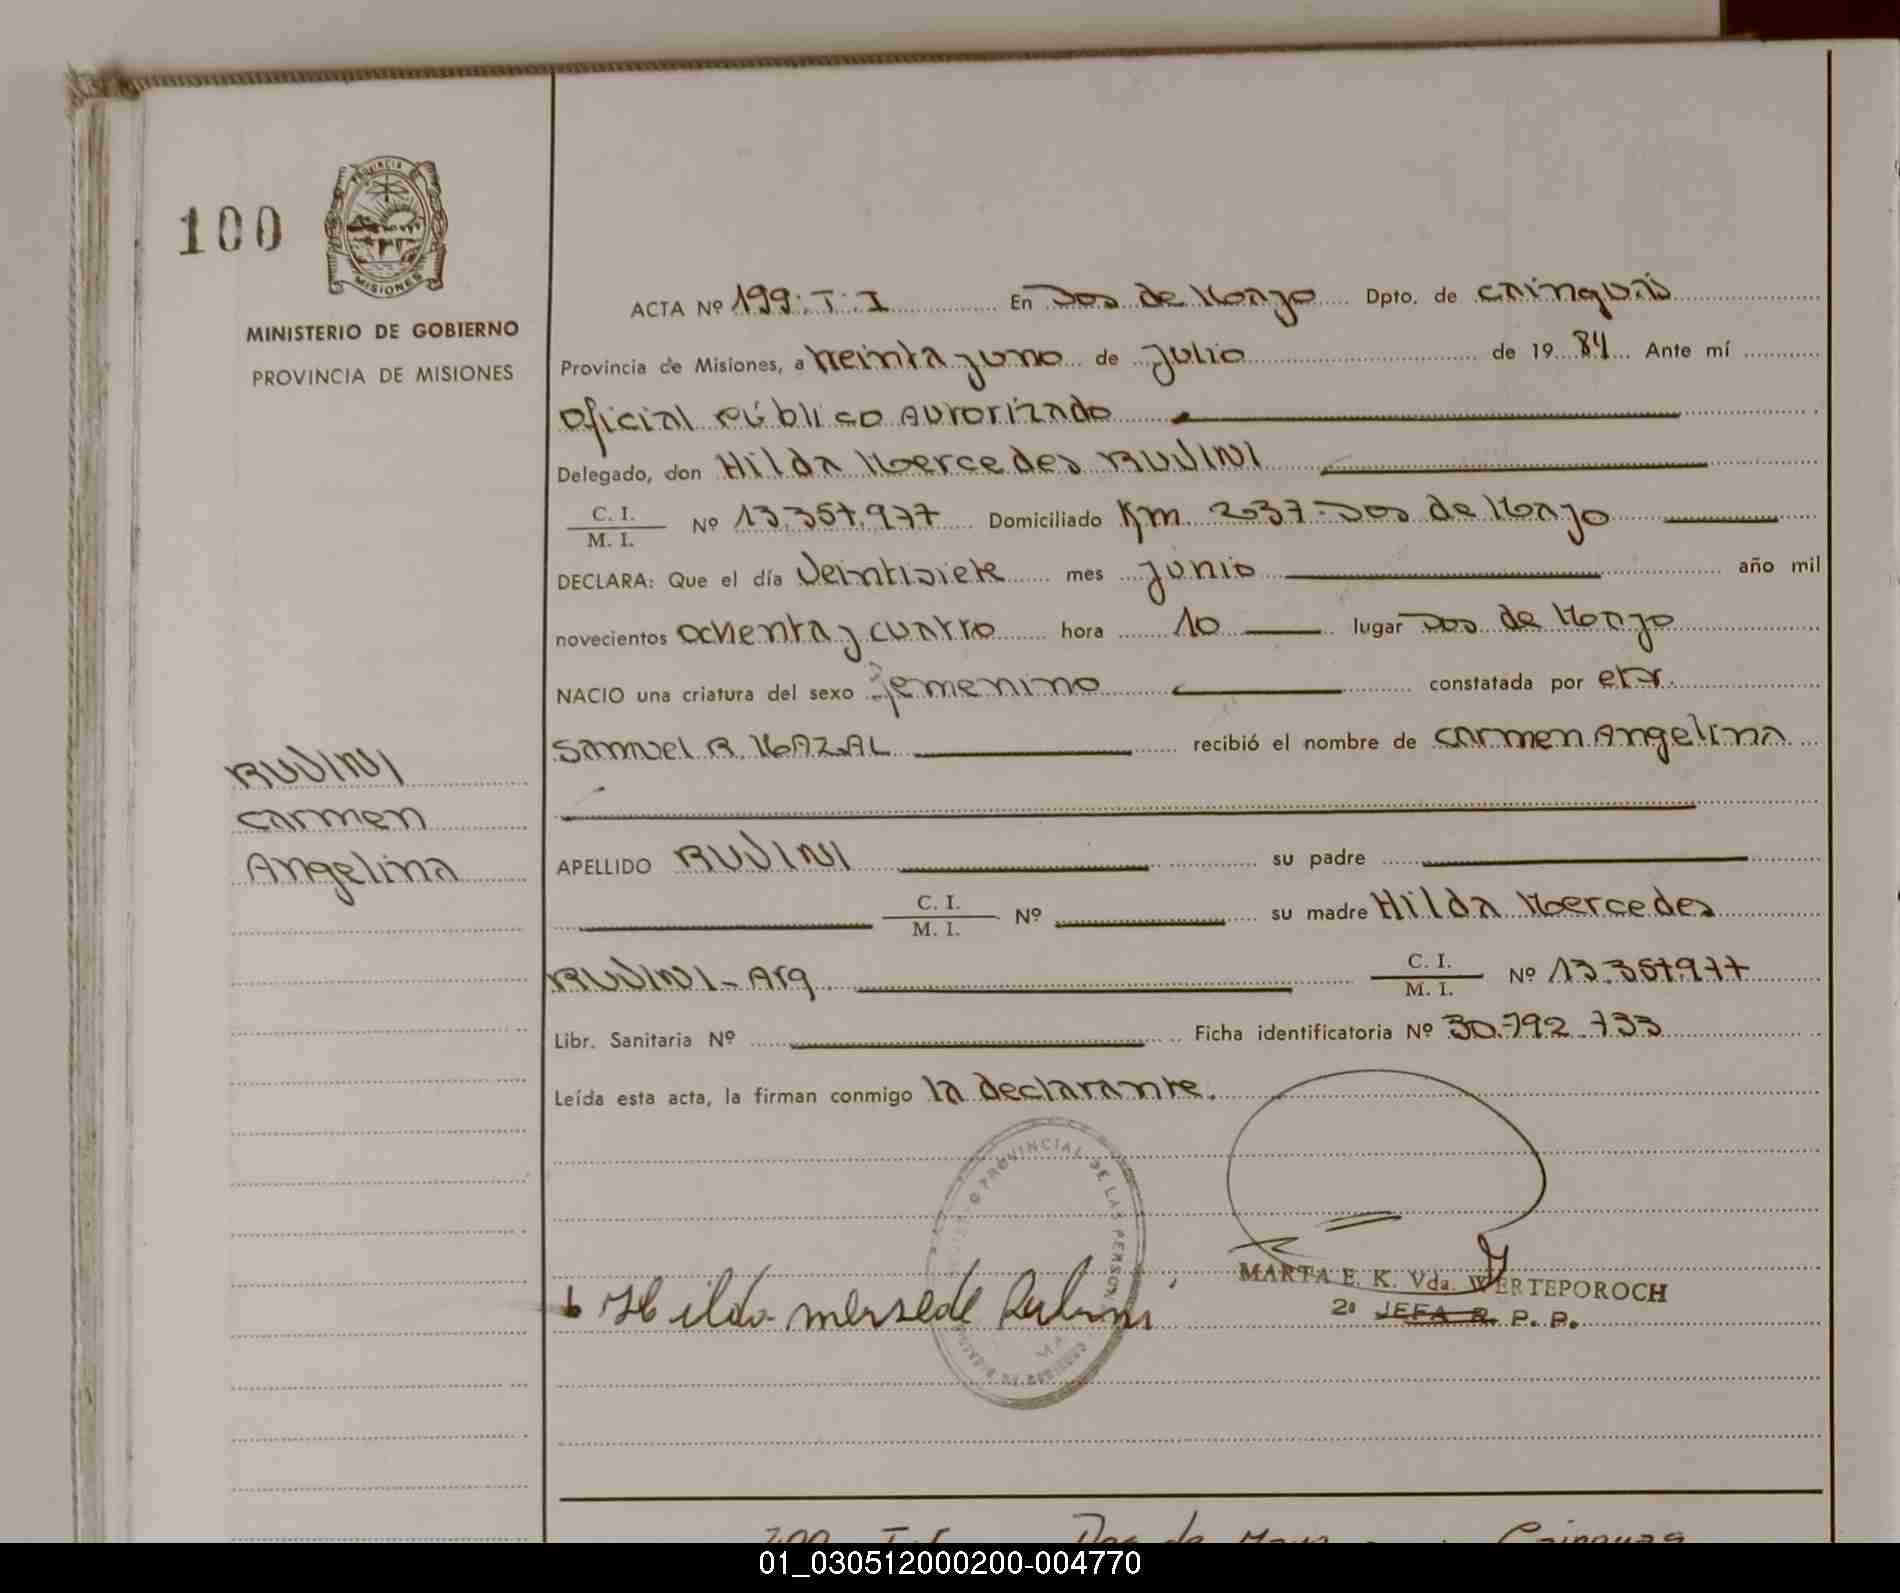 100
PROVINCIA DE
MISIONES
MINISTERIO DE GOBIERNO
PROVINCIA DE MISIONES
ACTA Nº 199:T:I En Dos de Mayo Dpto. de Cainguás
Provincia de Misiones, a treinta y uno de Julio de 1984 Ante mí
Oficial Público Autorizado
Delegado, don Hilda Mercedes RUVINI
C. I.
M. I. Nº 13.357.977 Domiciliado Km 237-Dos de Mayo
DECLARA: Que el día Veintisiete mes junio año mil
novecientos ochenta y cuatro hora 10 lugar Dos de Mayo
NACIO una criatura del sexo femenino constatada por el Dr.
Samuel R. MAZAL recibió el nombre de Carmen Angelina
RUVINI
Carmen
Angelina
APELLIDO RUVINI su padre
C. I.
M. I. Nº su madre Hilda Mercedes
RUVINI - Arg. C. I.
M. I. Nº 13.357.977
Libr. Sanitaria Nº Ficha identificatoria Nº 30.792.733
Leída esta acta, la firman conmigo la declarante.
PROVINCIAL DE LAS PERSONAS
Hilda mersede Rubini
MARTA E. K. Vda. WERTEPOROCH
2º JEFA R. P. P.
Dos de Mayo
01_030512000200-004770